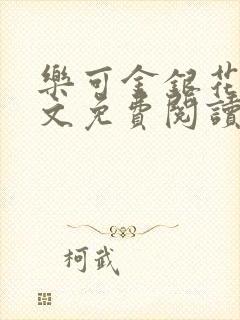 樂可金銀花
文免費閱讀
柯武